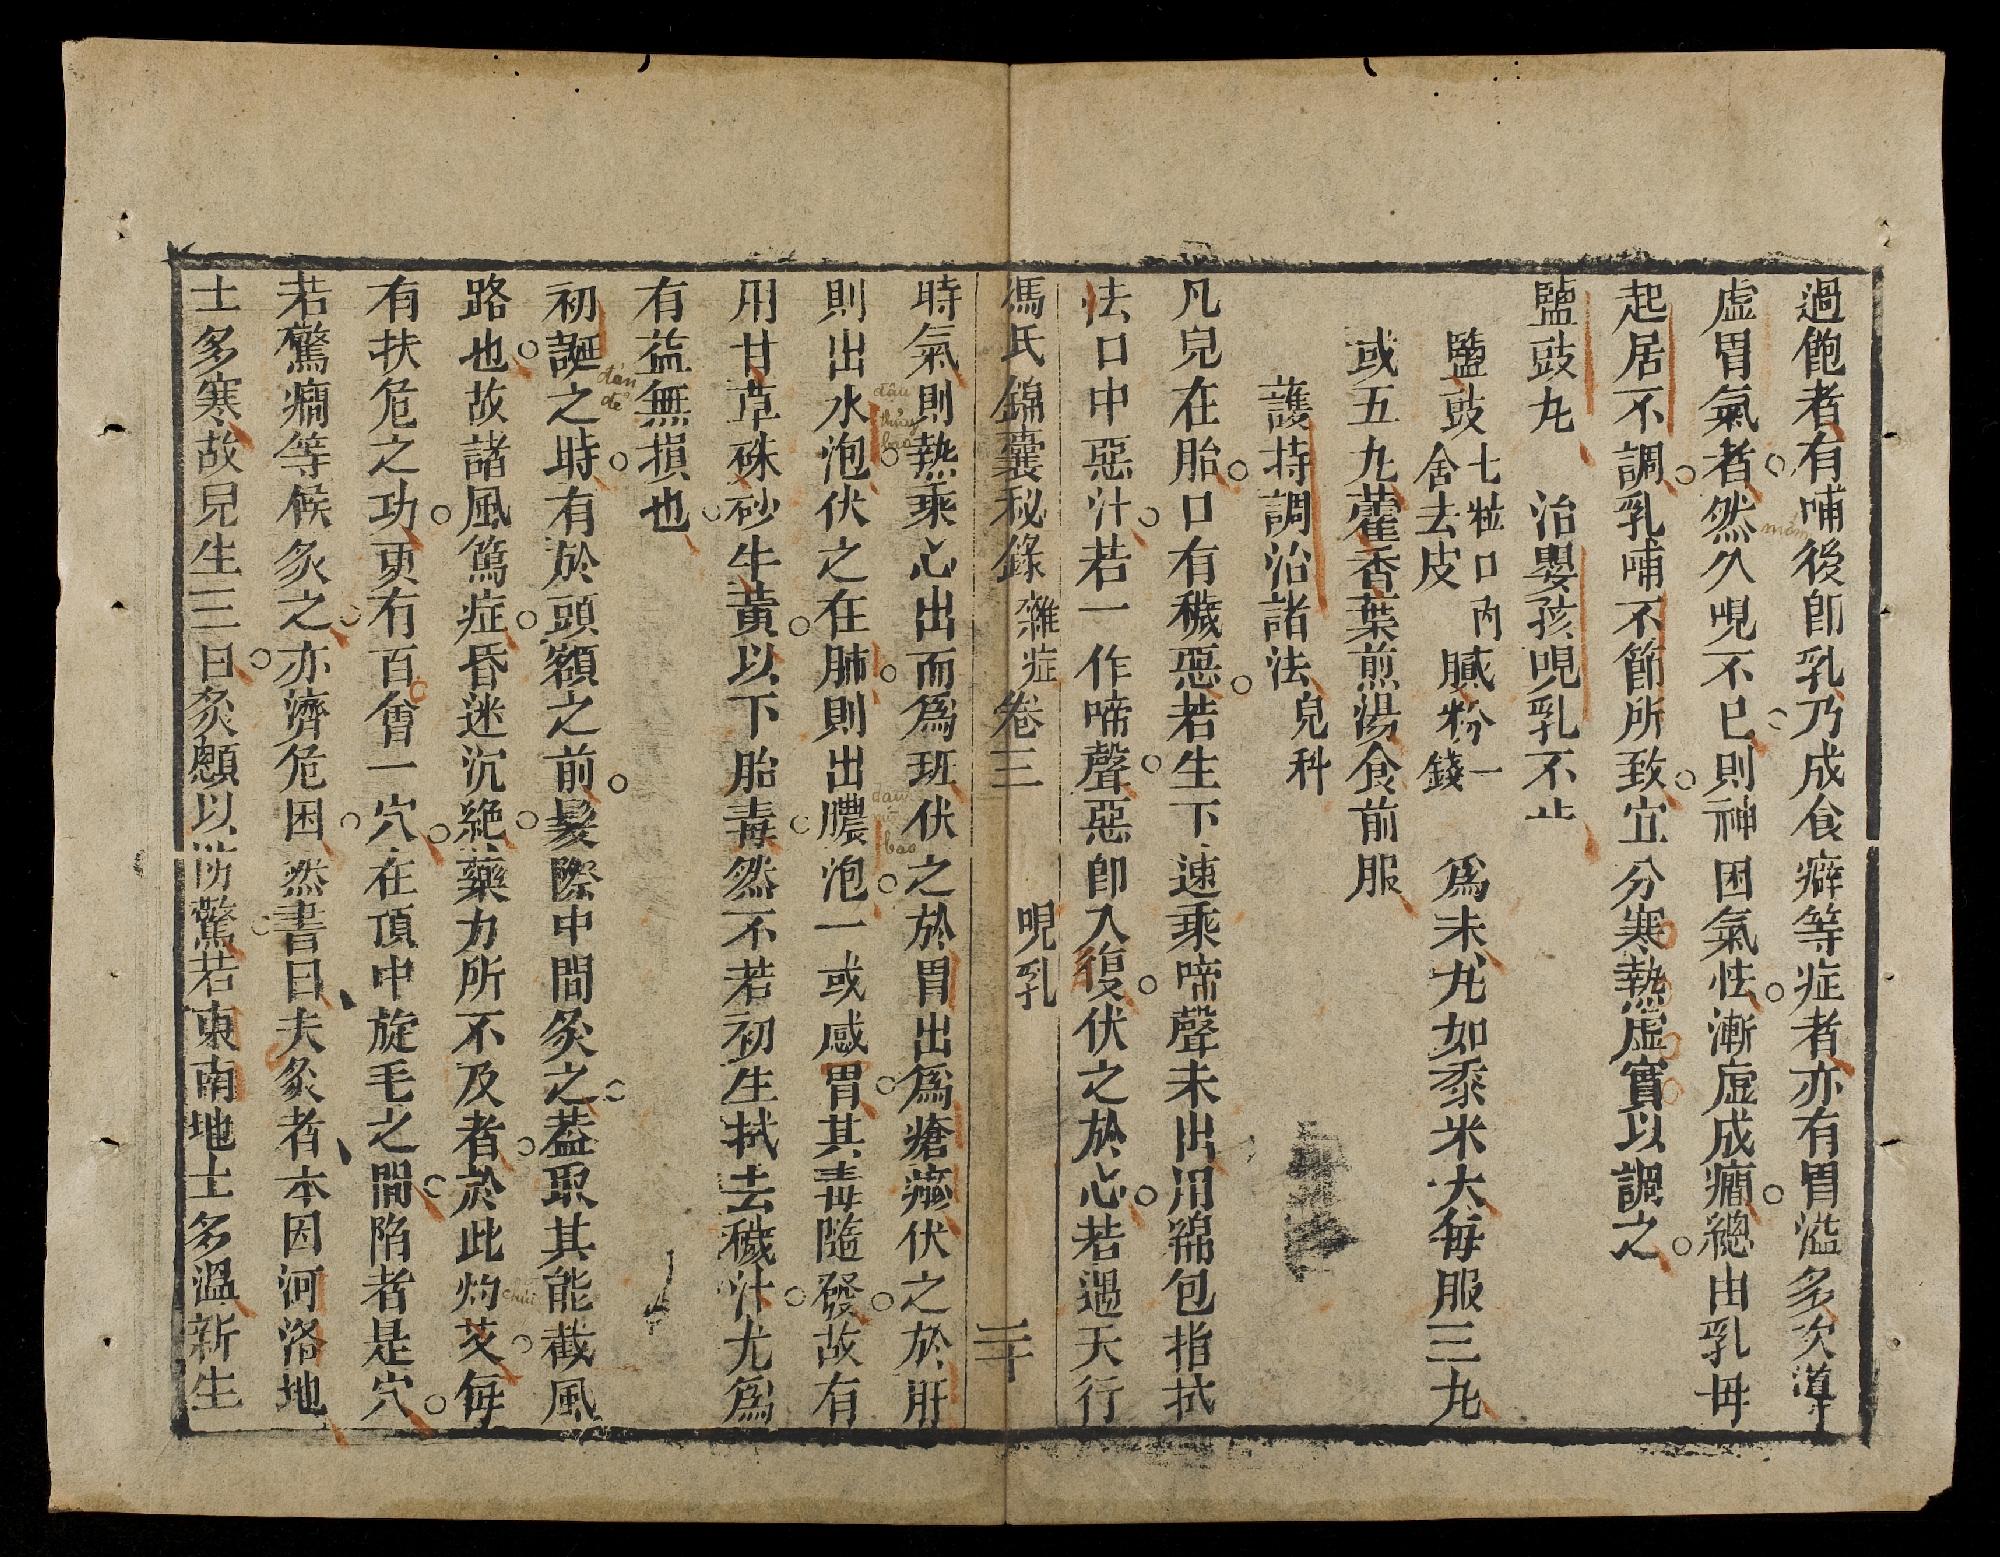 過飽者有哺後卽乳乃成食癖等症者亦有胃溢多次導
虛胃氣者然久哯不已則神困氣怯漸虛成癎總由乳母
起居不調乳哺不節所致宜分寒熱虛實以調之
鹽豉丸　治嬰孩哯乳不止
鹽豉七粒口內含去皮　膩粉一錢　爲末丸如黍米大每服三丸
或五丸藿香葉煎湯食前服
護持調治諸法兒科
凡兒在胎口有穢惡若生下速乘啼聲未出用綿包指拭
怯口中惡汁若一作啼聲惡卽入復伏之於心若遇天行
馮氏錦囊秘錄　雜症卷三　哯乳　二十
時氣則熱乘心出而爲班伏之於胃出爲瘡㾦伏之於肝
則出水泡伏之在肺則出膿泡一或感胃其毒隨發故有
用甘草硃砂牛黃以下胎毒然不若初生拭去穢汁尤爲
有益無損也
初誕之時有於頭額之前髮際中間灸之葢取其能截風
路也故諸風篤症昏迷沉絶藥力所不及者於此灼艾每
有扶危之功更有百會一穴在頂中旋毛之間陷者是穴
若驚癎等候灸之亦濟危困然書曰夫灸者本因河洛地
土多寒故兒生三日灸顋以防驚若東南地土多溫新生
mửa
đản đẻ
đậu thủy bào
đậu mủ bào